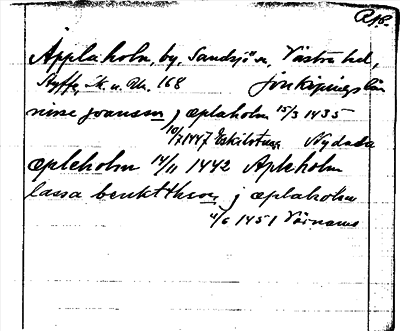 Äpplaholm, by, Sandsjö sn, Västra hd,
Styffe, Sk. u. Un. 168 Jönköpings län
nisse joansson j æplaholm 15/3 1435
10/7 1447 Eskilstuna Nydala
æpleholm 14/11 1442 Apleholm
lassa benkthson j æplaholm
4/6 1451 Värnamo